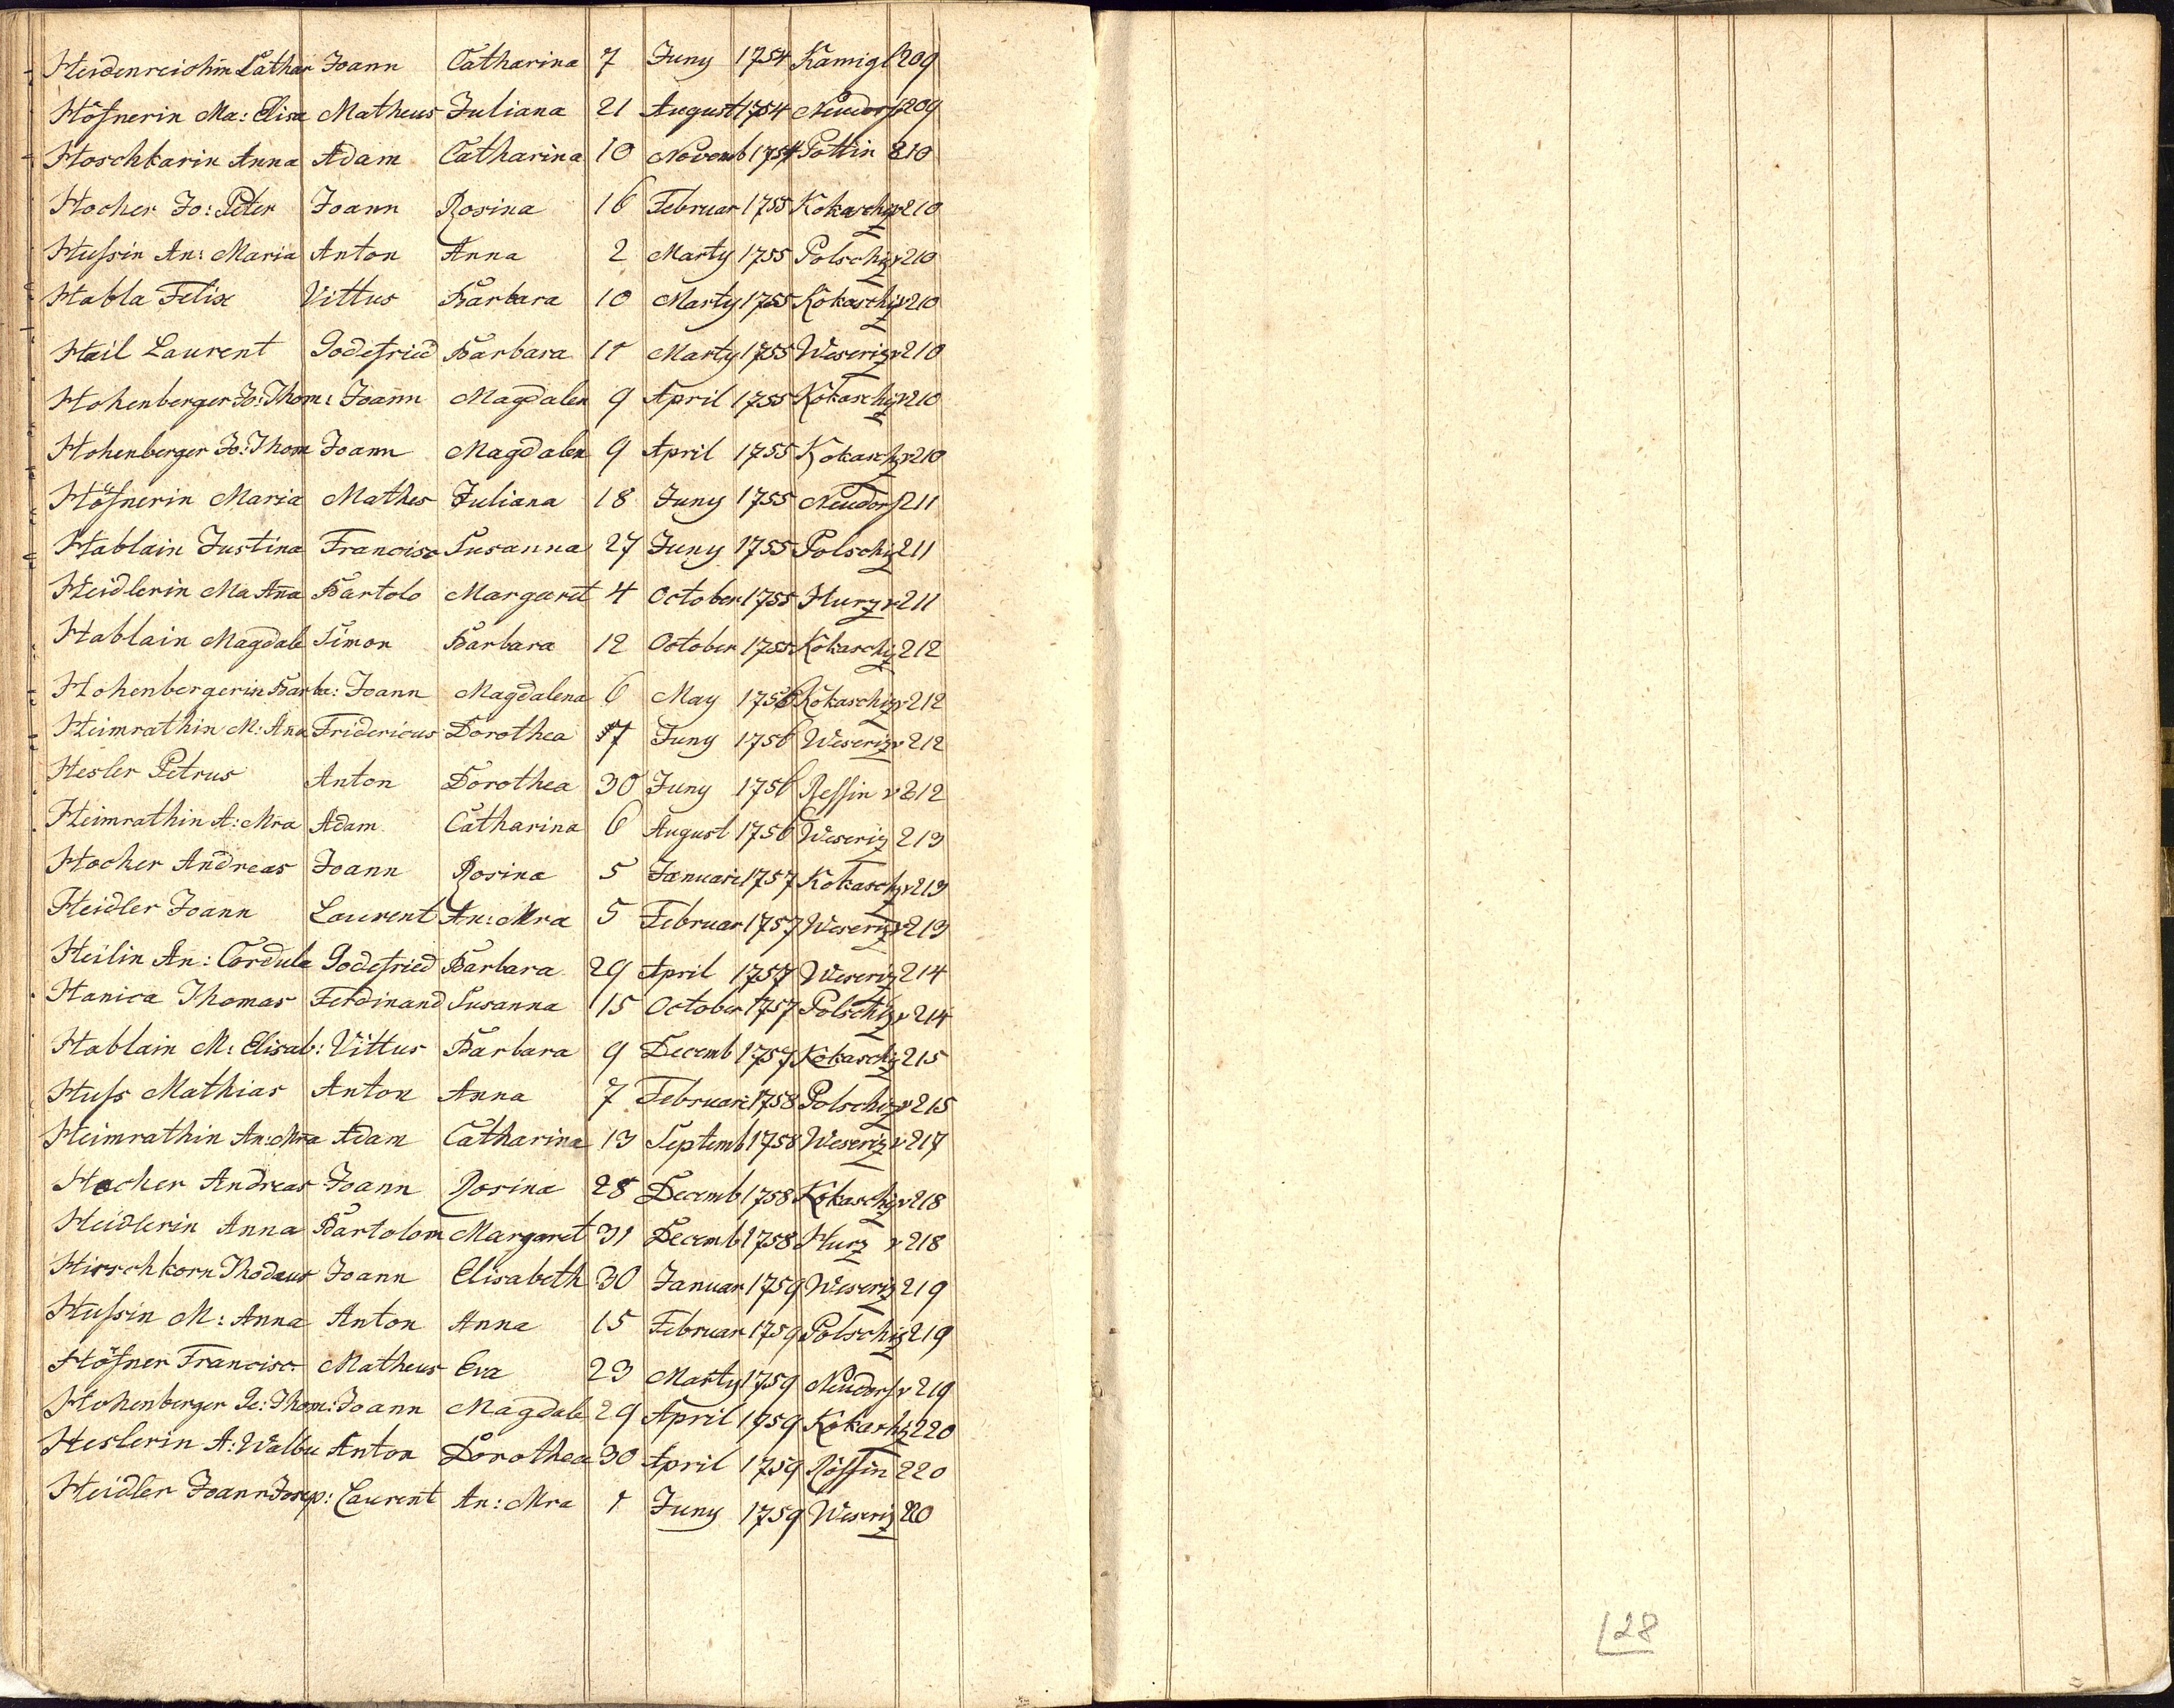 Heidenreichin Cathar Joann Catharina 7 Juny 1754 Kamigl 209
Höfnerin Ma: Elisa Matheus Juliana 21 August 1754 Neudorf 209
Hoschkarin Anna Adam Catharina 10 Novemb 1754 Pottin 210
Hocher Jo: Peter Joann Rosina 16 Februar 1755 Kokaschiz v 210
Hussin An: Maria Anton Anna 2 Marty 1755 Polschiz v 210
Habla Felix Vittus Barbara 10 Marty 1755 Kokaschiz v 210
Heil Laurent Godefried Barbara 11 Marty 1755 Weseriz v 210
Hohenberger Jo: Thom: Joann Magdalen 9 April 1755 Kokaschiz v 210
Hohenberger Jo: Thom Joann Magdalen 9 April 1755 Kokaschz v 210
Höfnerin Maria Mathes Juliana 18 Juny 1755 Neudorf 211
Hablain Justina Francisc Susanna 27 Juny 1755 Polschiz 211
Heidlerin Ma Aña Bartolo Margaret 4 October 1755 Hurz v 211
Hablain Magdale Simon Barbara 12 October 1755 Kokaschiz 212
Hohenbergerin Barba: Joann Magdalena 6 May 1756 Kokaschiz v 212
Heimrathin M: Ana Fridericus Dorothea 17 Juny 1756 Weseriz v 212
Hesler Petrus Anton Dorothea 30 Juny 1756 Ressin v 212
Heimrathin A: Mra Adam Catharina 6 August 1756 Weseriz 213
Hocher Andreas Joann Rosina 5 Januari 1757 Kokaschz v 213
Heidler Joann Laurent An: Mra 5 Februar 1757 Weseriz v 213
Heilin An: Cordula Godefried Barbara 29 April 1757 Weseriz 214
Hanica Thomas Ferdinand Susanna 15 October 1757 Polschiz v 214
Hablain M: Elisab: Vittus Barbara 9 Decemb 1757 Kokaschiz 215
Huss Mathias Anton Anna 7 Februari 1758 Polschiz v 215
Heimrathin An: Mra Adam Catharina 13 Septemb 1758 Weseriz v 217
Hocher Andreas Joann Rosina 28 Decemb 1758 Kokaschiz v 218
Heidlerin Anna Bartolom Margaret 31 Decemb 1758 Hurz v 218
Hirschkorn Thodaus Joann Elisabeth 30 Januar 1759 Weseriz 219
Hussin M: Anna Anton Anna 15 Februar 1759 Polschiz 219
Höfner Francisc Matheus Eva 23 Marty 1759 Neudorf v 219
Hohenberger Thom: Joann Magdale 29 April 1759 Kokaschz 220
Heslerin A: Walbu Anton Dorothea 30 April 1759 Rössin 220
Heidler Joann Josep: Laurent An: Mra 1 Juny 1759 Weseriz 220
128